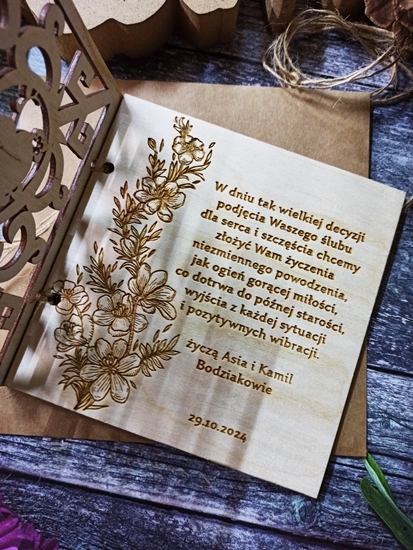 W dniu tak wielkiej decyzji
podjęcia Waszego ślubu
dla serca i szczęścia chcemy
złożyć Wam życzenia
niezmiennego powodzenia,
jak ogień gorącej miłości,
co dotrwa do późnej starości,
wyjścia z każdej sytuacji
i pozytywnych wibracji.
życzą Asia i Kamil
Bodziakowie
29.10.2024